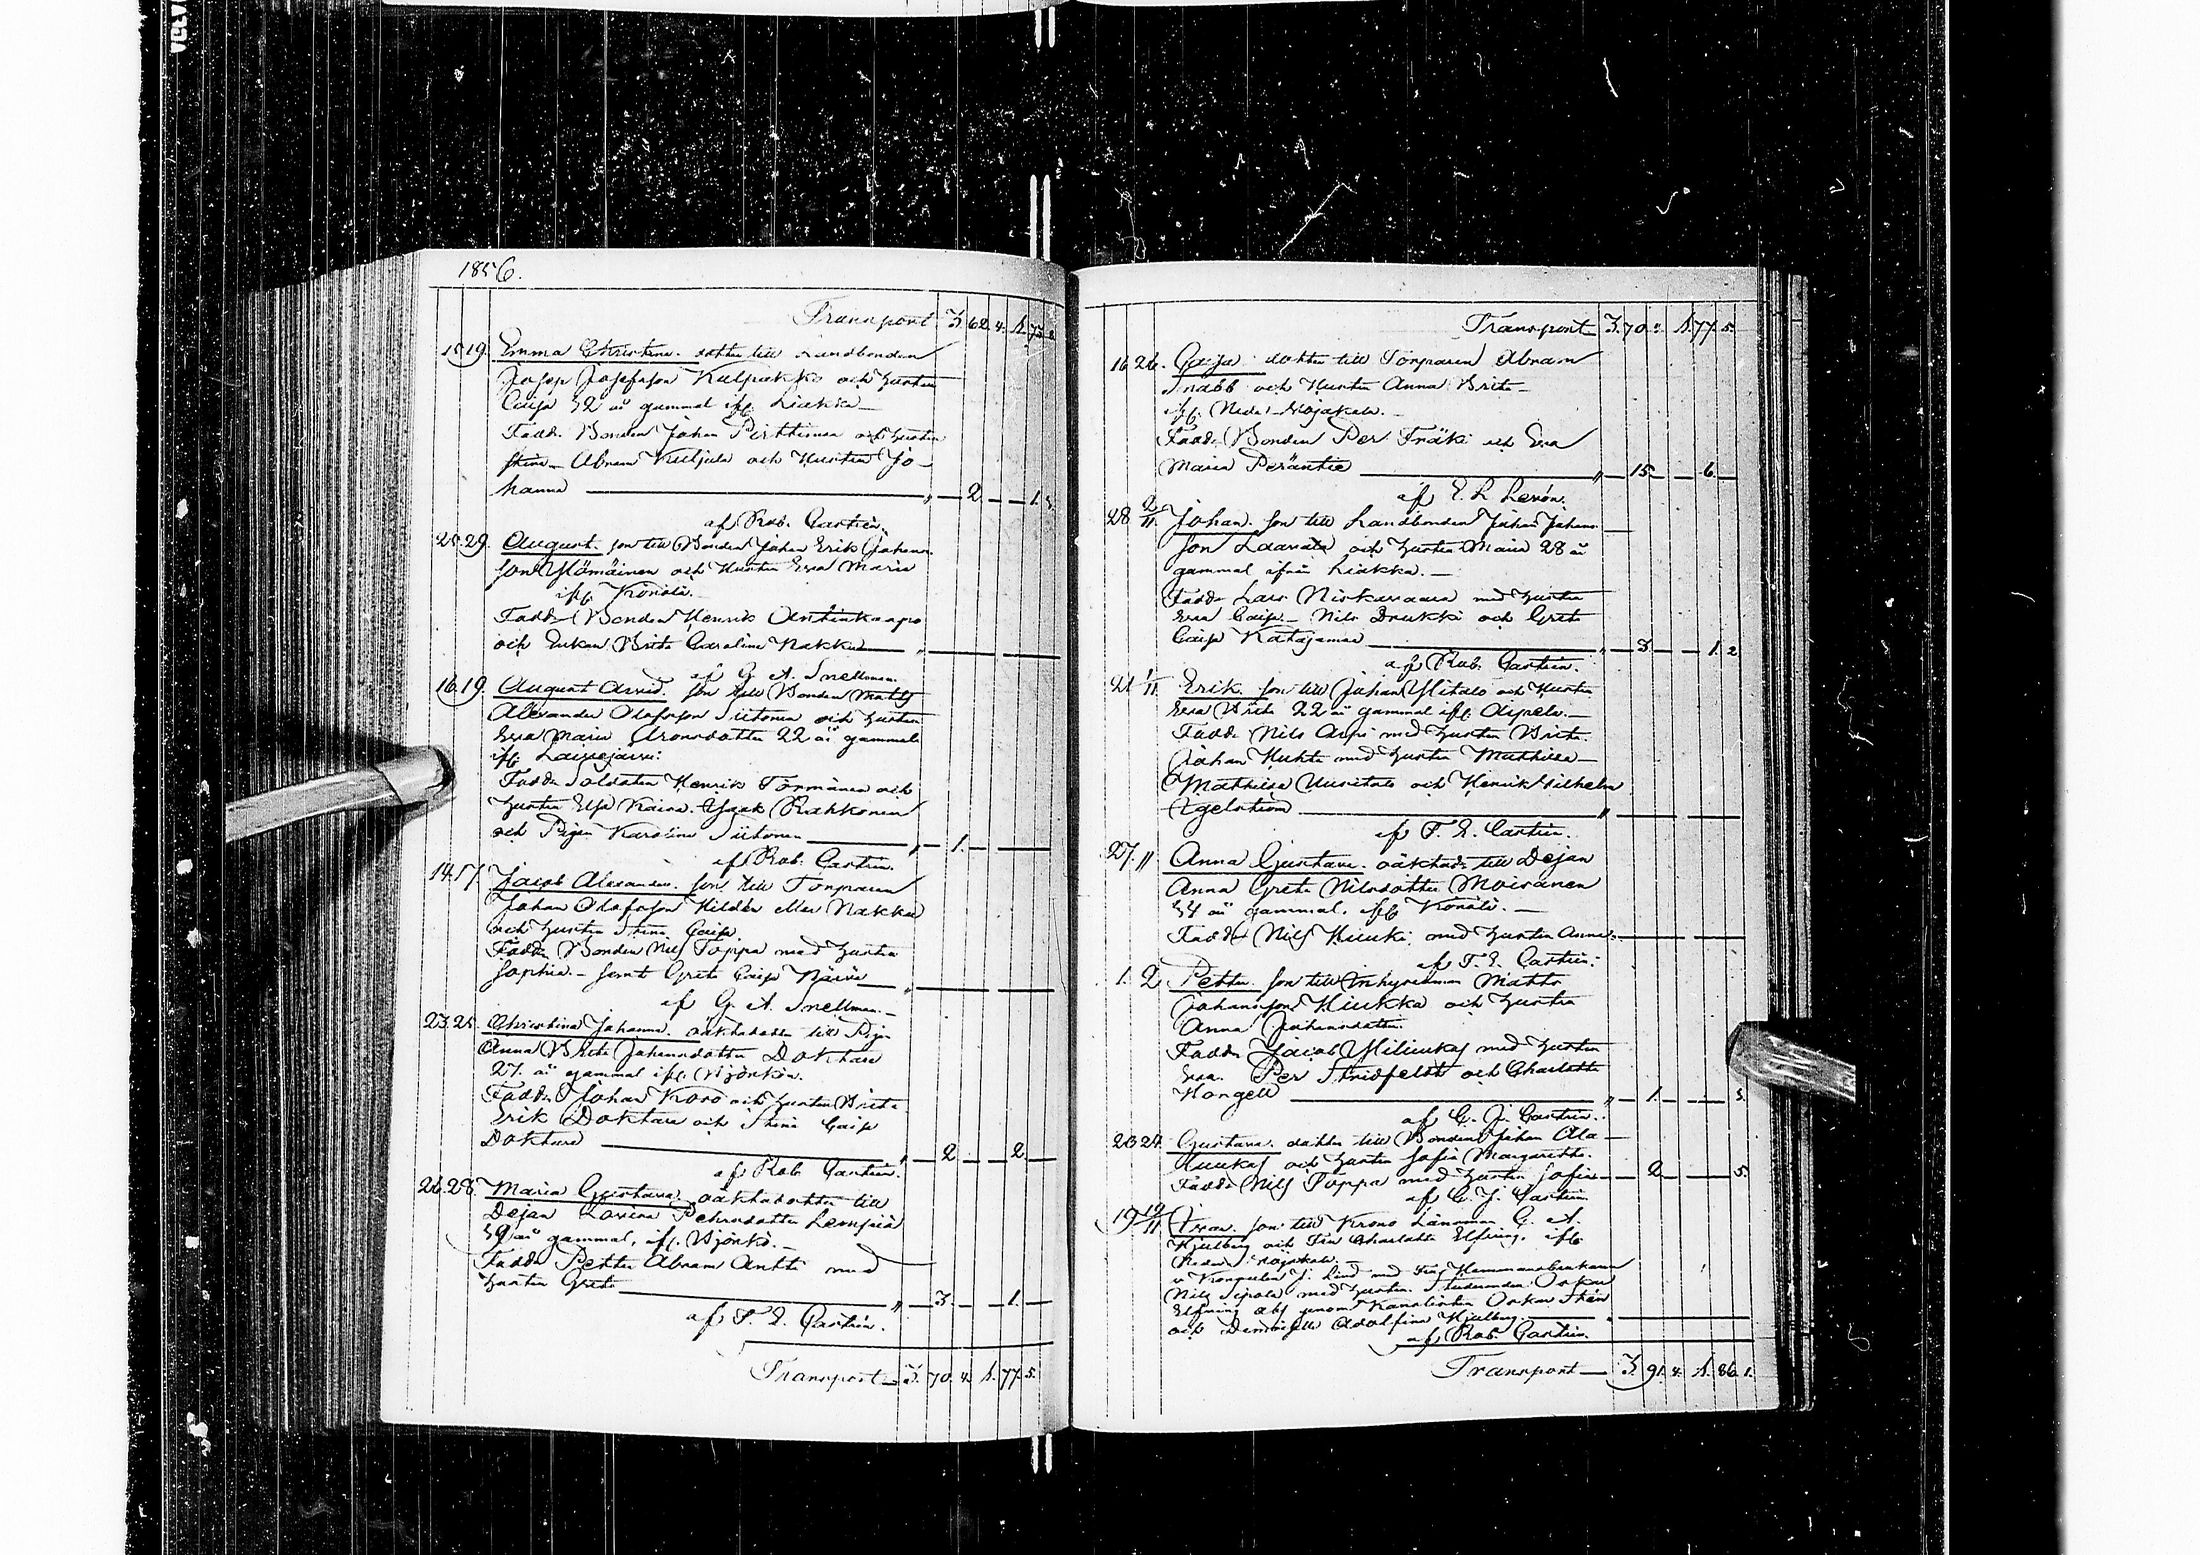 1856.
Transport 3. 62. 4. 1. 73. 2.
15 19. Emma Christina. dotter till Landbonden
Josep Josefsson Kulpakko och hustru
Caisa 32 år gammal ifr. Liakka
Fadd. Bonden Johan Pirttinen och hustru
Stina Abram Kuljula och Hustru Jo-
hanna 2 1.
af Rob. Castrén.
25. 29. August. son till Bonden Johan Erik Johans
son Ylömäinen och Hustru Eva Maria
ifr.
Fadd. Bonden Henrik
och Enkan Brita Carolina Nakku
af G. A. Snellman.
16. 19. August Arvid. son till Bonden Matts
Alexander Olofsson Siitonen och hustru
Eva Maria Aronsdotter 22 år gammal
ifr.
Fadd. Soldaten Henrik Törmänen och
hustru Elsa Kaisa. Isaak Rahkonen
och Pigan Karolina Siitonen 1.
af Rob. Castrén.
14. 17. Jacob Alexander. son till Torparen
Johan Olofsson Hildén eller Nakku
och hustru Stina Caisa
Fadd. Bonden Nils Poppa med hustru
Sophia. samt Greta Caisa
af G. A. Snellman.
23. 25. Christina Johanna. oäktadotter till Pigan
Anna Brita Johansdotter Doktare
27. år gammal ifr. Björkön.
Fadd. Johan Koro och hustru Brita
Erik Doktare och Stina Caisa
Doktare 2 2
af Rob Castrén.
26. 28. Maria Gustava oäktadotter till
Dejan Lovisa Pehrsdotter Lempiä
39 år gammal, ifr. Björkö.
Fadd. Petter Abram Antti med
hustru Greta 3. 1.
af F. E. Castrén.
Transport 3. 70. 4. 1. 77. 5.
Transport 3. 70. 4. 1. 77. 5.
16 26. Caisa dotter till Torparen Abram
Snabb och Hustru Anna Brita
ifr. Neder
Fadd. Bonden Per Fräki och Eva
Maria Peräntie 15. 6.
af E. L. Lexén.
28 2/11. Johan. son till Landbonden Johan Johans
son Laurila och hustru Maria 28 år
gammal ifrån Liakka.
Fadd. Lars Niskavaara med hustru
Eva Caisa Nils Drukki och Greta
Caisa Katajamaa 3 1. 2
af Rob. Castrén.
21 1/11. Erik. son till Johan Ylitalo och Hustru
Eva Brita 22 år gammal ifr.
Fadd. Nils med hustru Brita.
Johan Huhta med hustru Mathilda
Mathilda Uusitalo och Henrik Wilhelm
Egelström
af F. E. Castrén.
27. " Anna Gustava. oäktad. till Dejan
Anna Greta Nilsdotter Moisanen
34 år gammal. ifr.
Fadd. Nils Kuuki med hustru Anna
af F. E. Castrén.
1. 2 Petter son till Inhysesman Matts
Johansson Hiukka och hustru
Anna Johansdotter.
Fadd. Jacob Yliluukas med hustru
Eva. Per Stridfeldt och Charlotta
Kongell 1. 3.
af C. J. Castrén.
20 24. Gustava. dotter till Bonden Johan Ala
luukas och hustru Sofia Margaretha.
Fadd. Nils Poppa med hustru Sofia 2 5
af C. J. Castrén
19 19/11 Ivar. son till Krono Länsman G. A.
Hjulberg och Fru Charlotta Elfving. ifr.
Neder
J. Lind med Fru Hemmansbrukaren
Nils Sipola med hustru. Studeranden Oskar
Elfving abs genom Kanslisten Oskar
och Demoiselle Adolfina Hjulberg.
af Rob. Castrén.
Transport 3. 91. 4. 1. 86. 1.